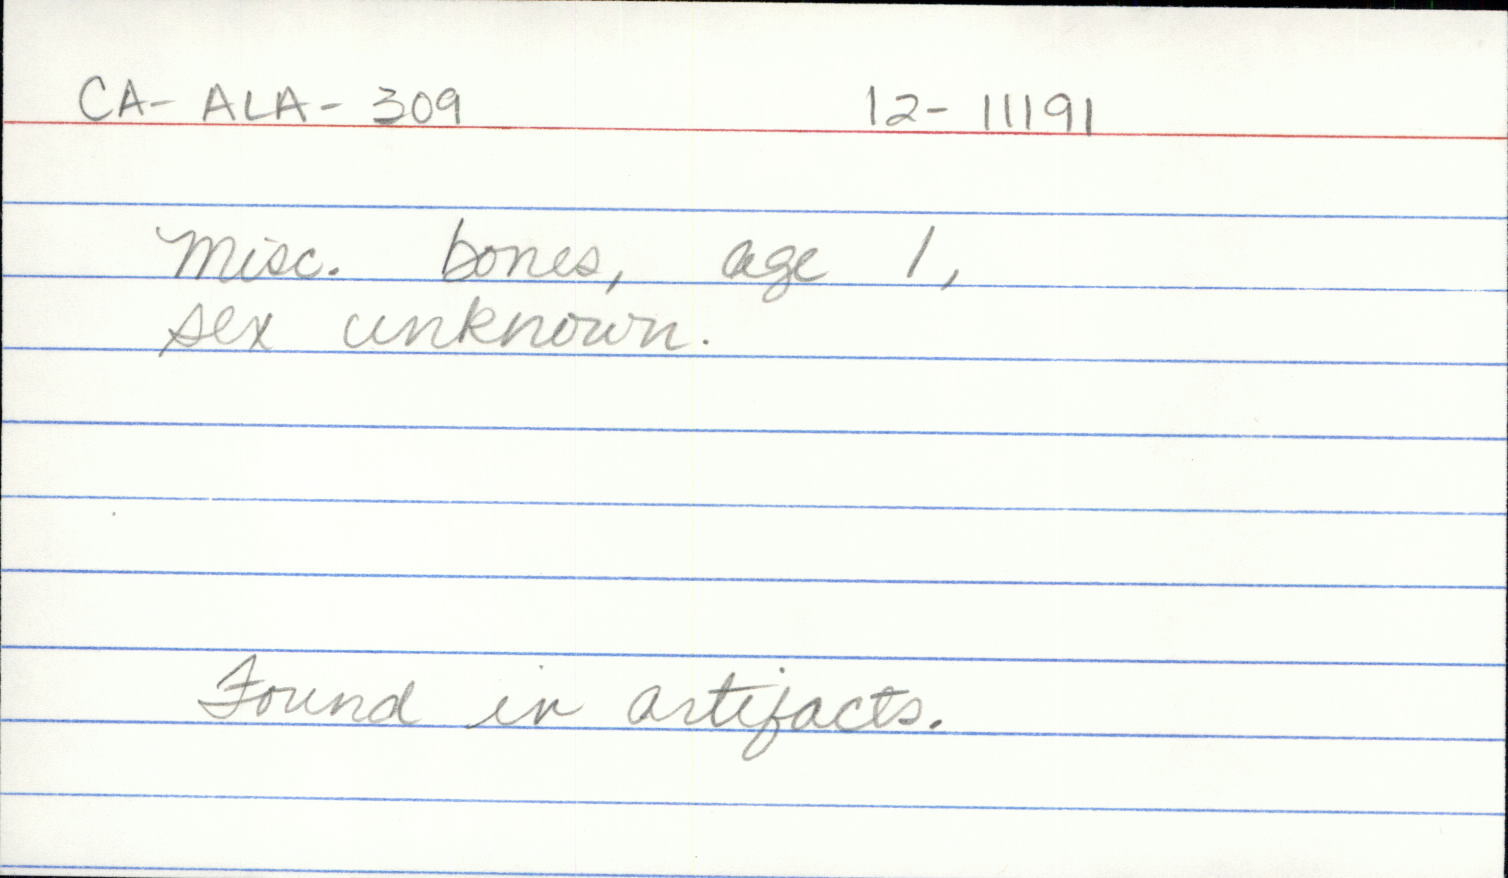 CA- ALA- 309 12- 11191
Misc. bones, age 1,
sex unknown.
Found in artifacts.